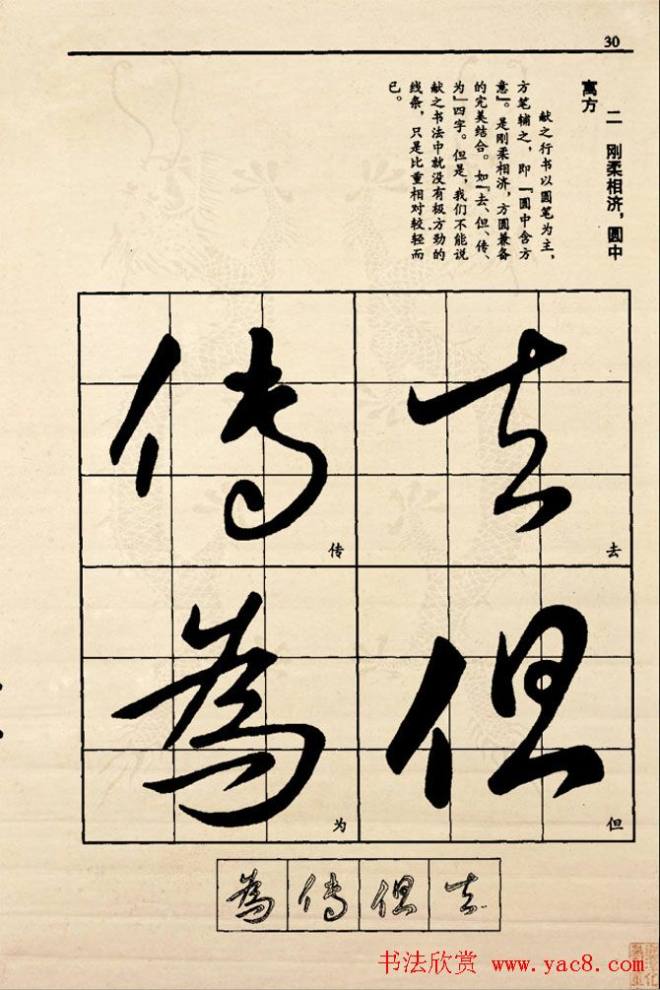 30
二　刚柔相济，圆中
寓方
献之行书以圆笔为主，
方笔辅之，即『圆中含方
意』。是刚柔相济，方圆兼备
的完美结合。如『去、但、传、
为』四字。但是，我们不能说
献之书法中就没有极方劲的
线条，只是比重相对较轻而
已。
去
去
但
但
傳
传
為
为
去
但
傳
為
书法欣赏 www.yac8.com